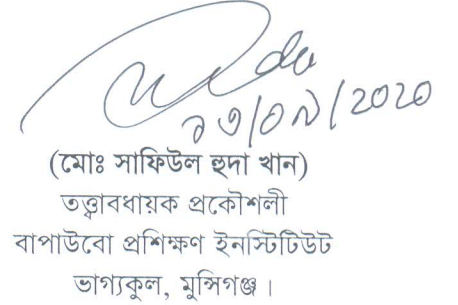 ১৩/০৯/২০২০
(মোঃ সাফিউল হুদা খান)
তত্ত্বাবধায়ক প্রকৌশলী
বাপাউবো প্রশিক্ষণ ইনস্টিটিউট
ভাগ্যকুল, মুন্সিগঞ্জ।